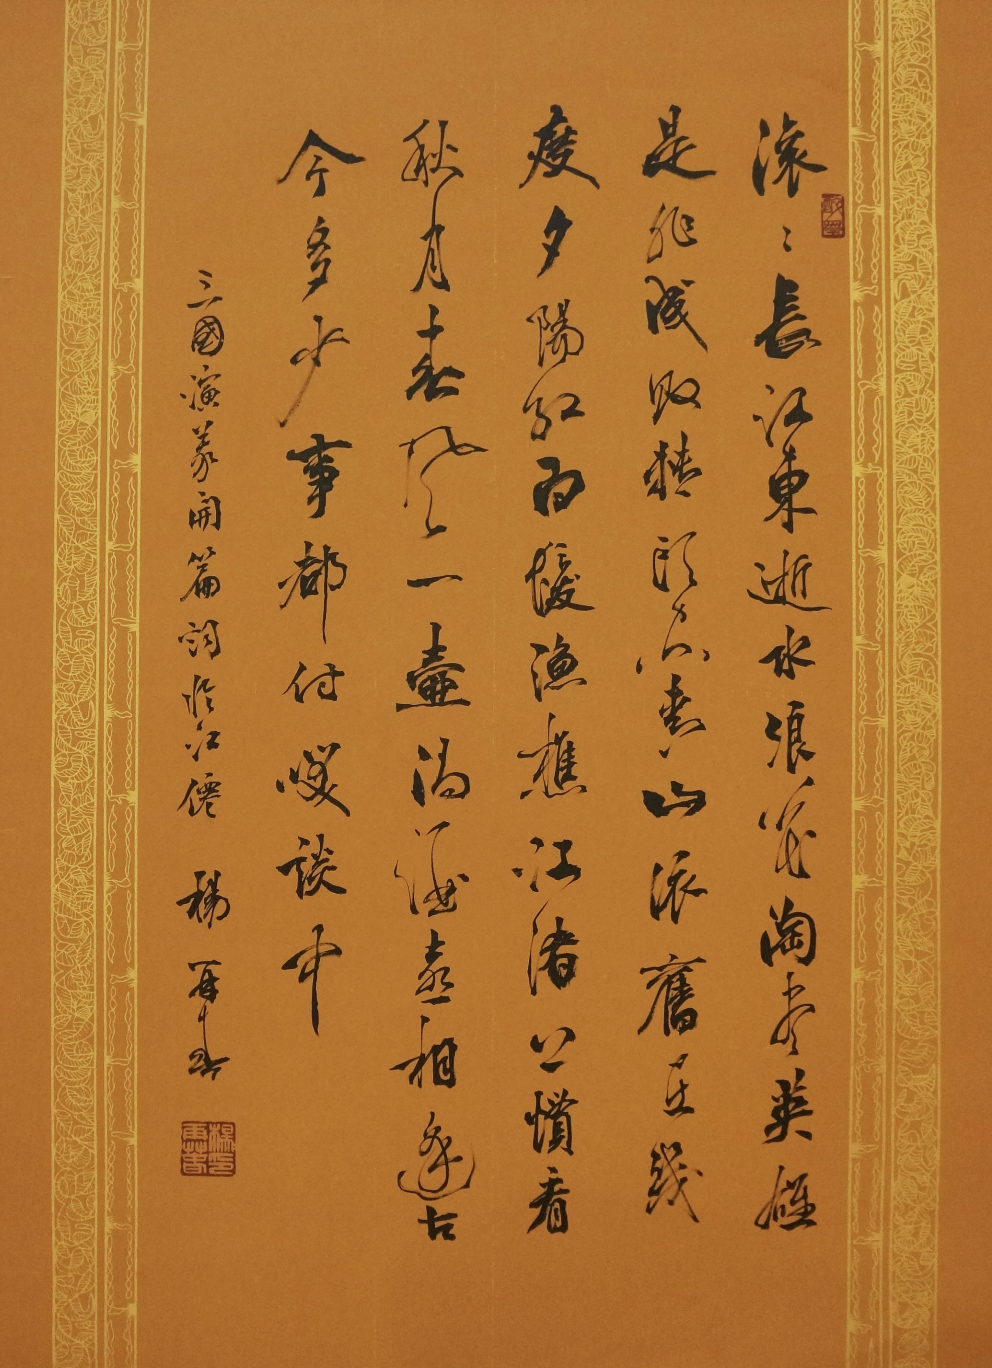 滚〻長江東逝水浪花淘尽英雄
是非成敗轉頭空青山依舊在幾
度夕陽紅白髮漁樵江渚上慣看
秋月春風一壺濁酒喜相逢古
今多少事都付笑談中
三國演義開篇詞臨江僊 楊再春